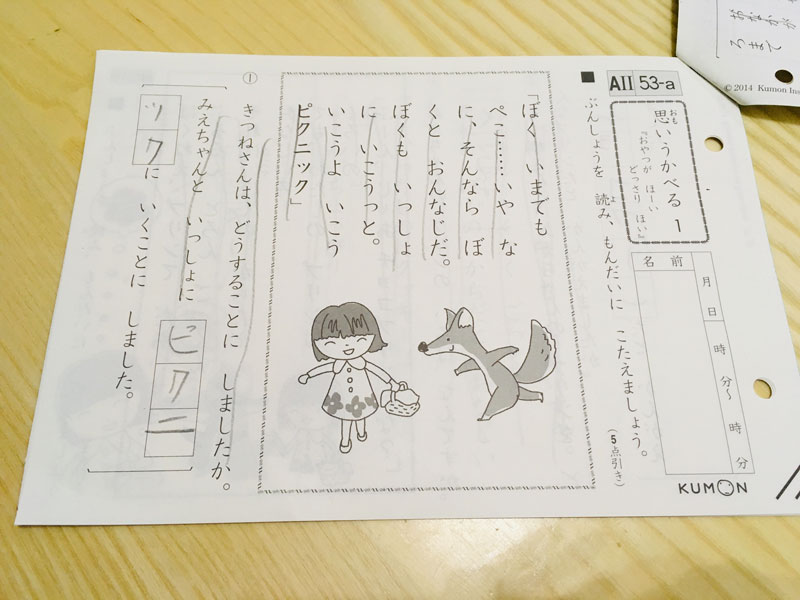 © 2014 Kumon Ins
AII 53-a
思いうかべる 1
おも
『おやつが ほーい
どっさり ほい』
月 日 時 分〜 時 分
名前
KUMON
■ ぶんしょうを 読み、もんだいに こたえましょう。
よ
(5点引き)
「ぼく いまでも
ぺこ……いや な
に、そんなら ぼ
くと おんなじだ。
ぼくも いっしょ
に いこうっと。
いこうよ いこう
ピクニック」
① きつねさんは、どうすることに しましたか。
みえちゃんと いっしょに ピクニ
ックに いくことに しました。